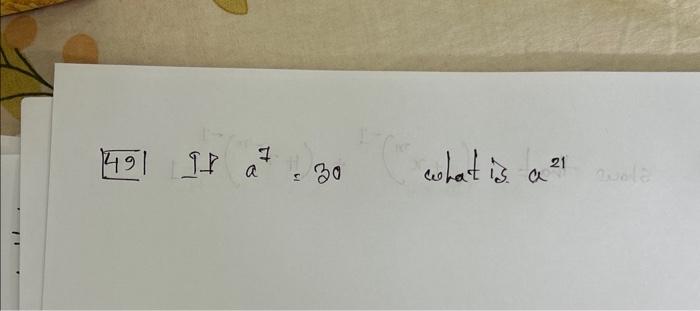 49 If a⁷ = 30 what is a²¹